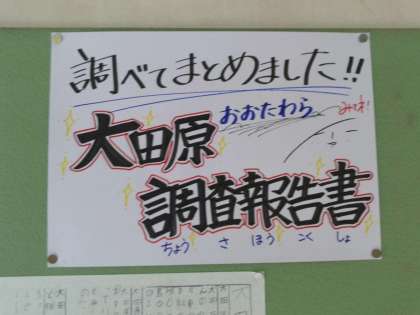 調べてまとめました!!
おおたわら
みてネ!
大田原
調査報告書
ちょう さ ほう こく しょ